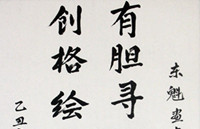 东魁画
有胆寻
创格绘
乙丑